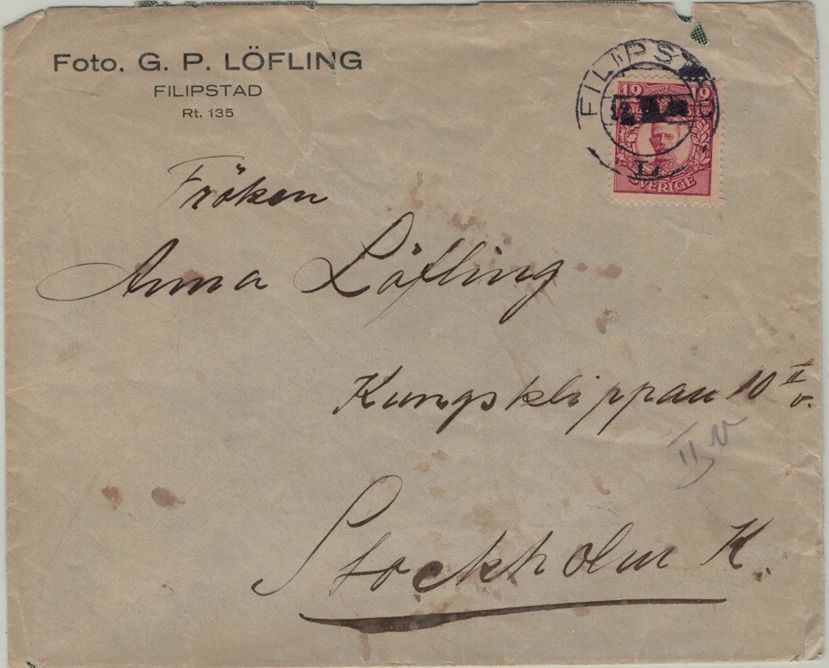 Foto. G. P. LÖFLING
FILIPSTAD
Rt. 135
FILIPSTAD
12 12
SVERIGE
Fröken
Anna Löfling
Kungsklippan 10 II v.
II v
Stockholm K.